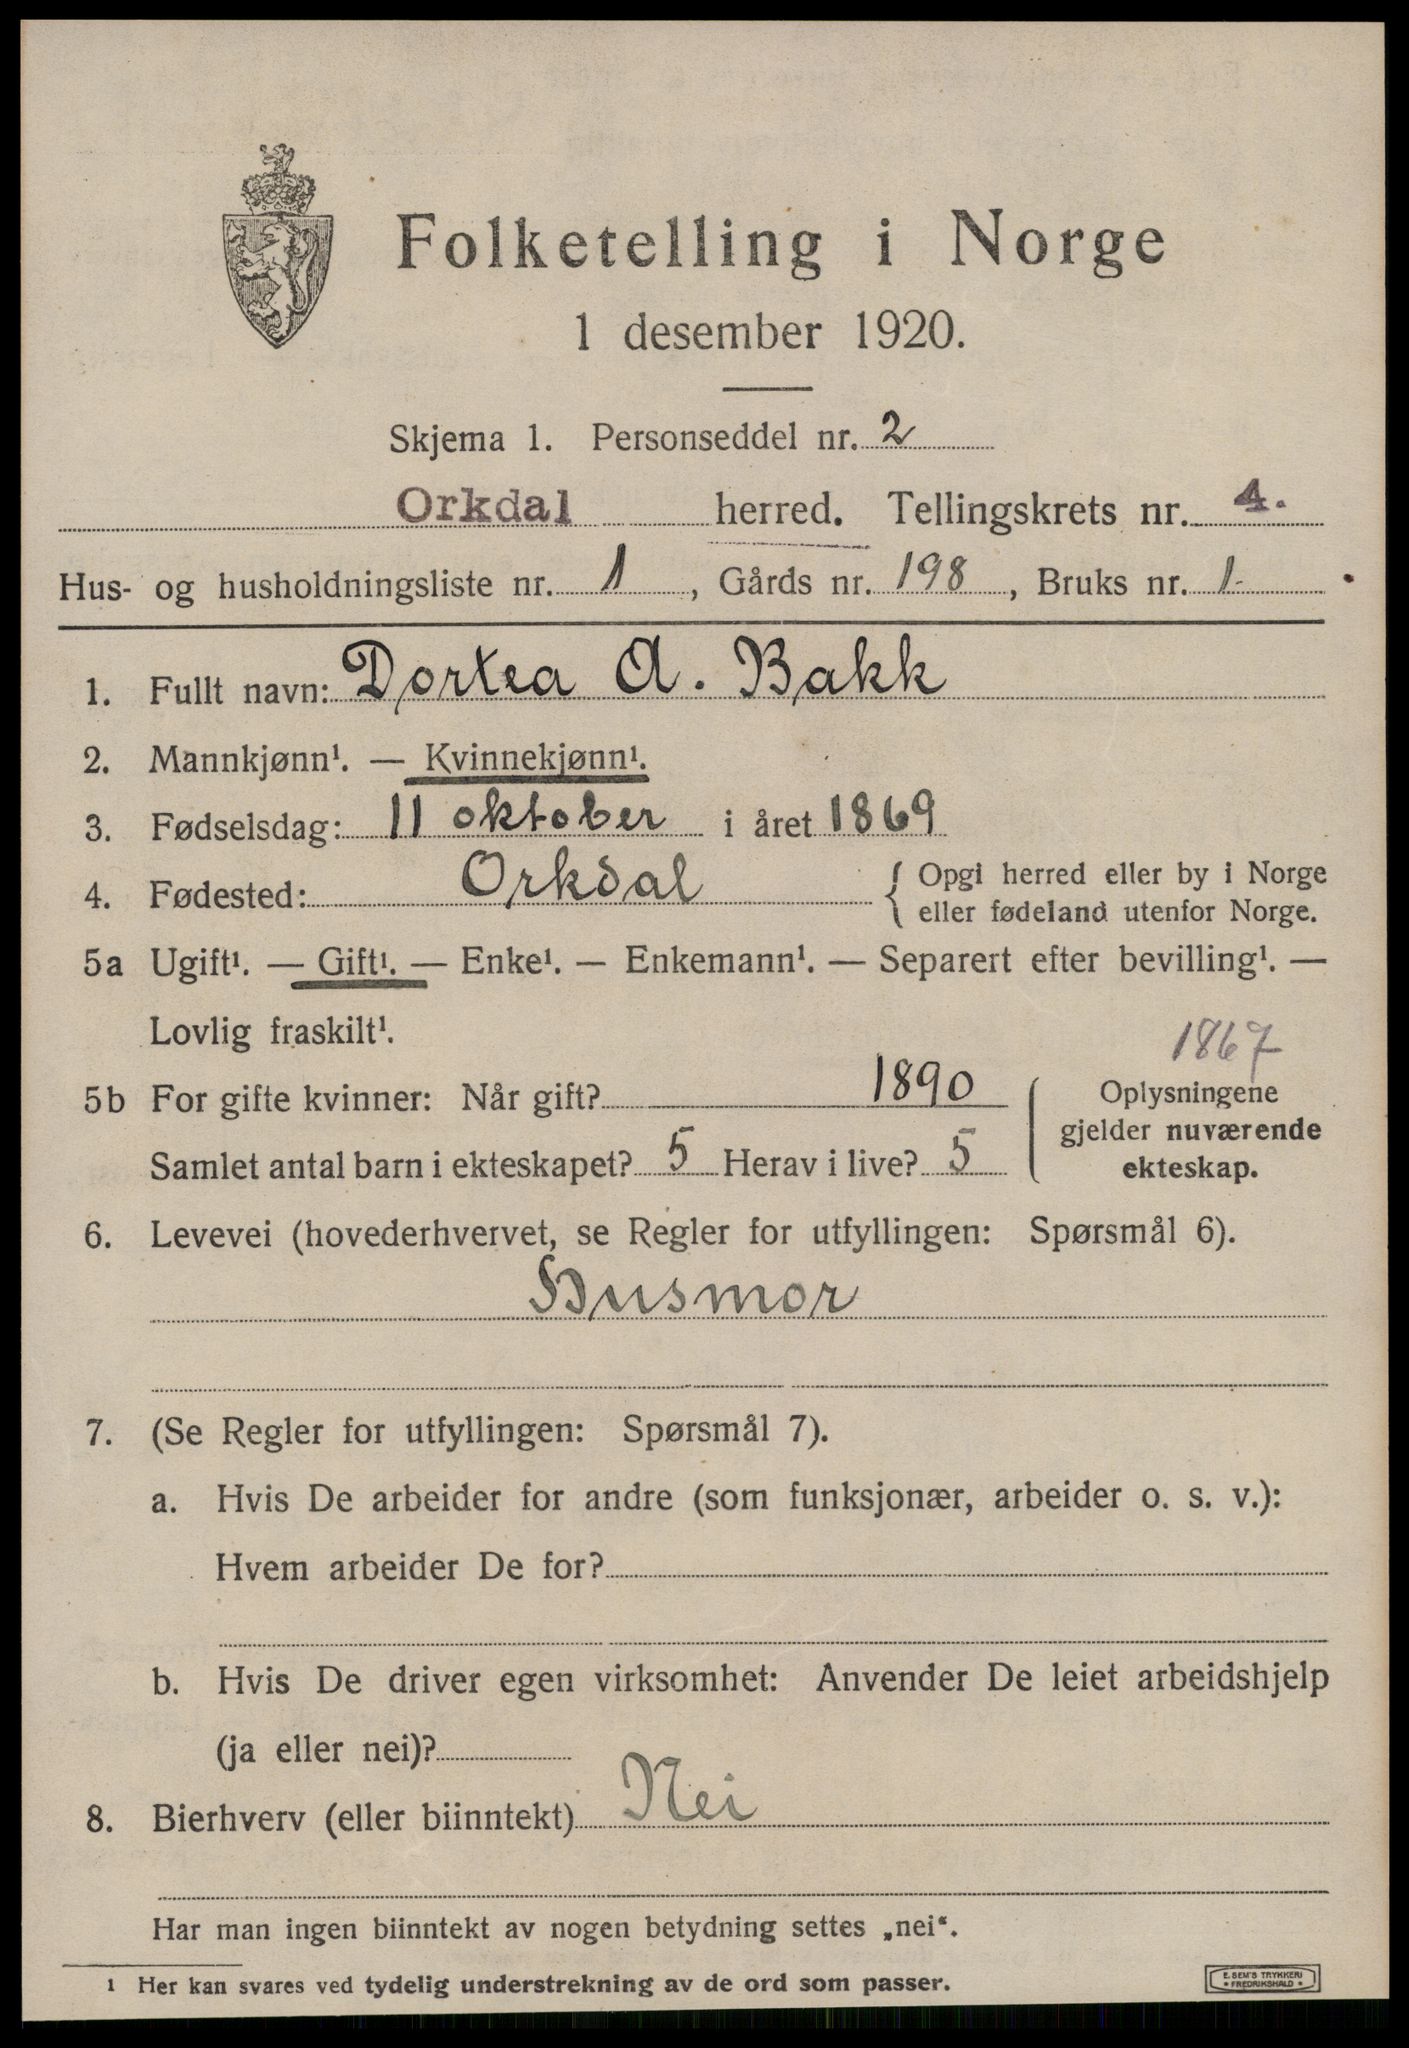 Folketelling i Norge
1 desember 1920.
Skjema 1. Personseddel nr. 2
Orkdal herred. Tellingskrets nr. 4.
Hus- og husholdningsliste nr. 1, Gårds nr. 198, Bruks nr. 1
1. Fullt navn: Dortea A. Bakk
2. Mannkjønn¹. — Kvinnekjønn¹.
3. Fødselsdag: 11 oktober i året 1869
4. Fødested: Orkdal { Opgi herred eller by i Norge
eller fødeland utenfor Norge.
5a Ugift¹. — Gift¹. — Enke¹. — Enkemann¹. — Separert efter bevilling¹. —
Lovlig fraskilt¹.
1867
5b For gifte kvinner: Når gift? 1890
Samlet antal barn i ekteskapet? 5 Herav i live? 5
Oplysningene
gjelder nuværende
ekteskap.
6. Levevei (hovederhvervet, se Regler for utfyllingen: Spørsmål 6).
Husmor
7. (Se Regler for utfyllingen: Spørsmål 7).
a. Hvis De arbeider for andre (som funksjonær, arbeider o. s. v.):
Hvem arbeider De for?
b. Hvis De driver egen virksomhet: Anvender De leiet arbeidshjelp
(ja eller nei)?
8. Bierhverv (eller biinntekt) Nei
Har man ingen biinntekt av nogen betydning settes „nei“.
1 Her kan svares ved tydelig understrekning av de ord som passer.
E. SEM'S TRYKKERI
★ FREDRIKSHALD ★